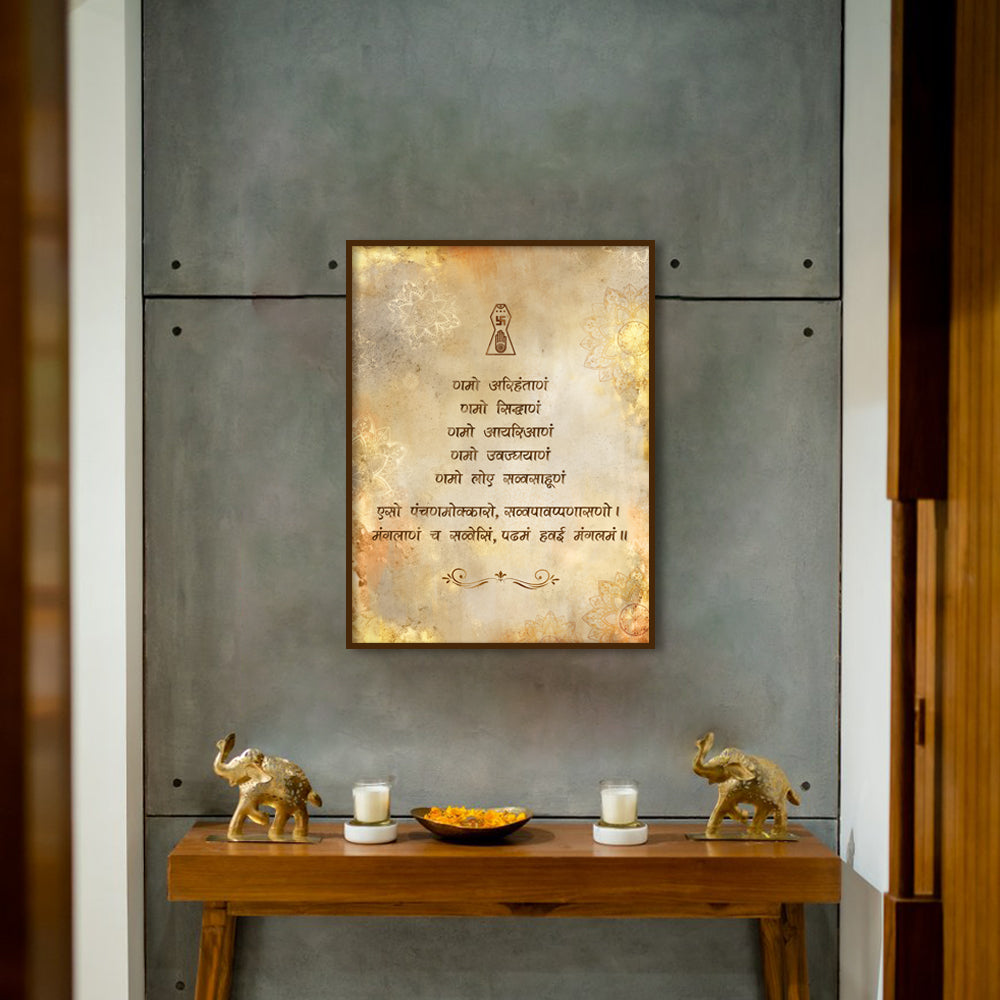 णमो अरिहंताणं
णमो सिद्धाणं
णमो आयरिआणं
णमो उवज्झयाणं
णमो लोए सव्वसाहूणं
एसो पंचणमोक्कारो, सव्वपावप्पणासणो।
मंगलाणं च सव्वेसिं, पढमं हवई मंगलमं॥